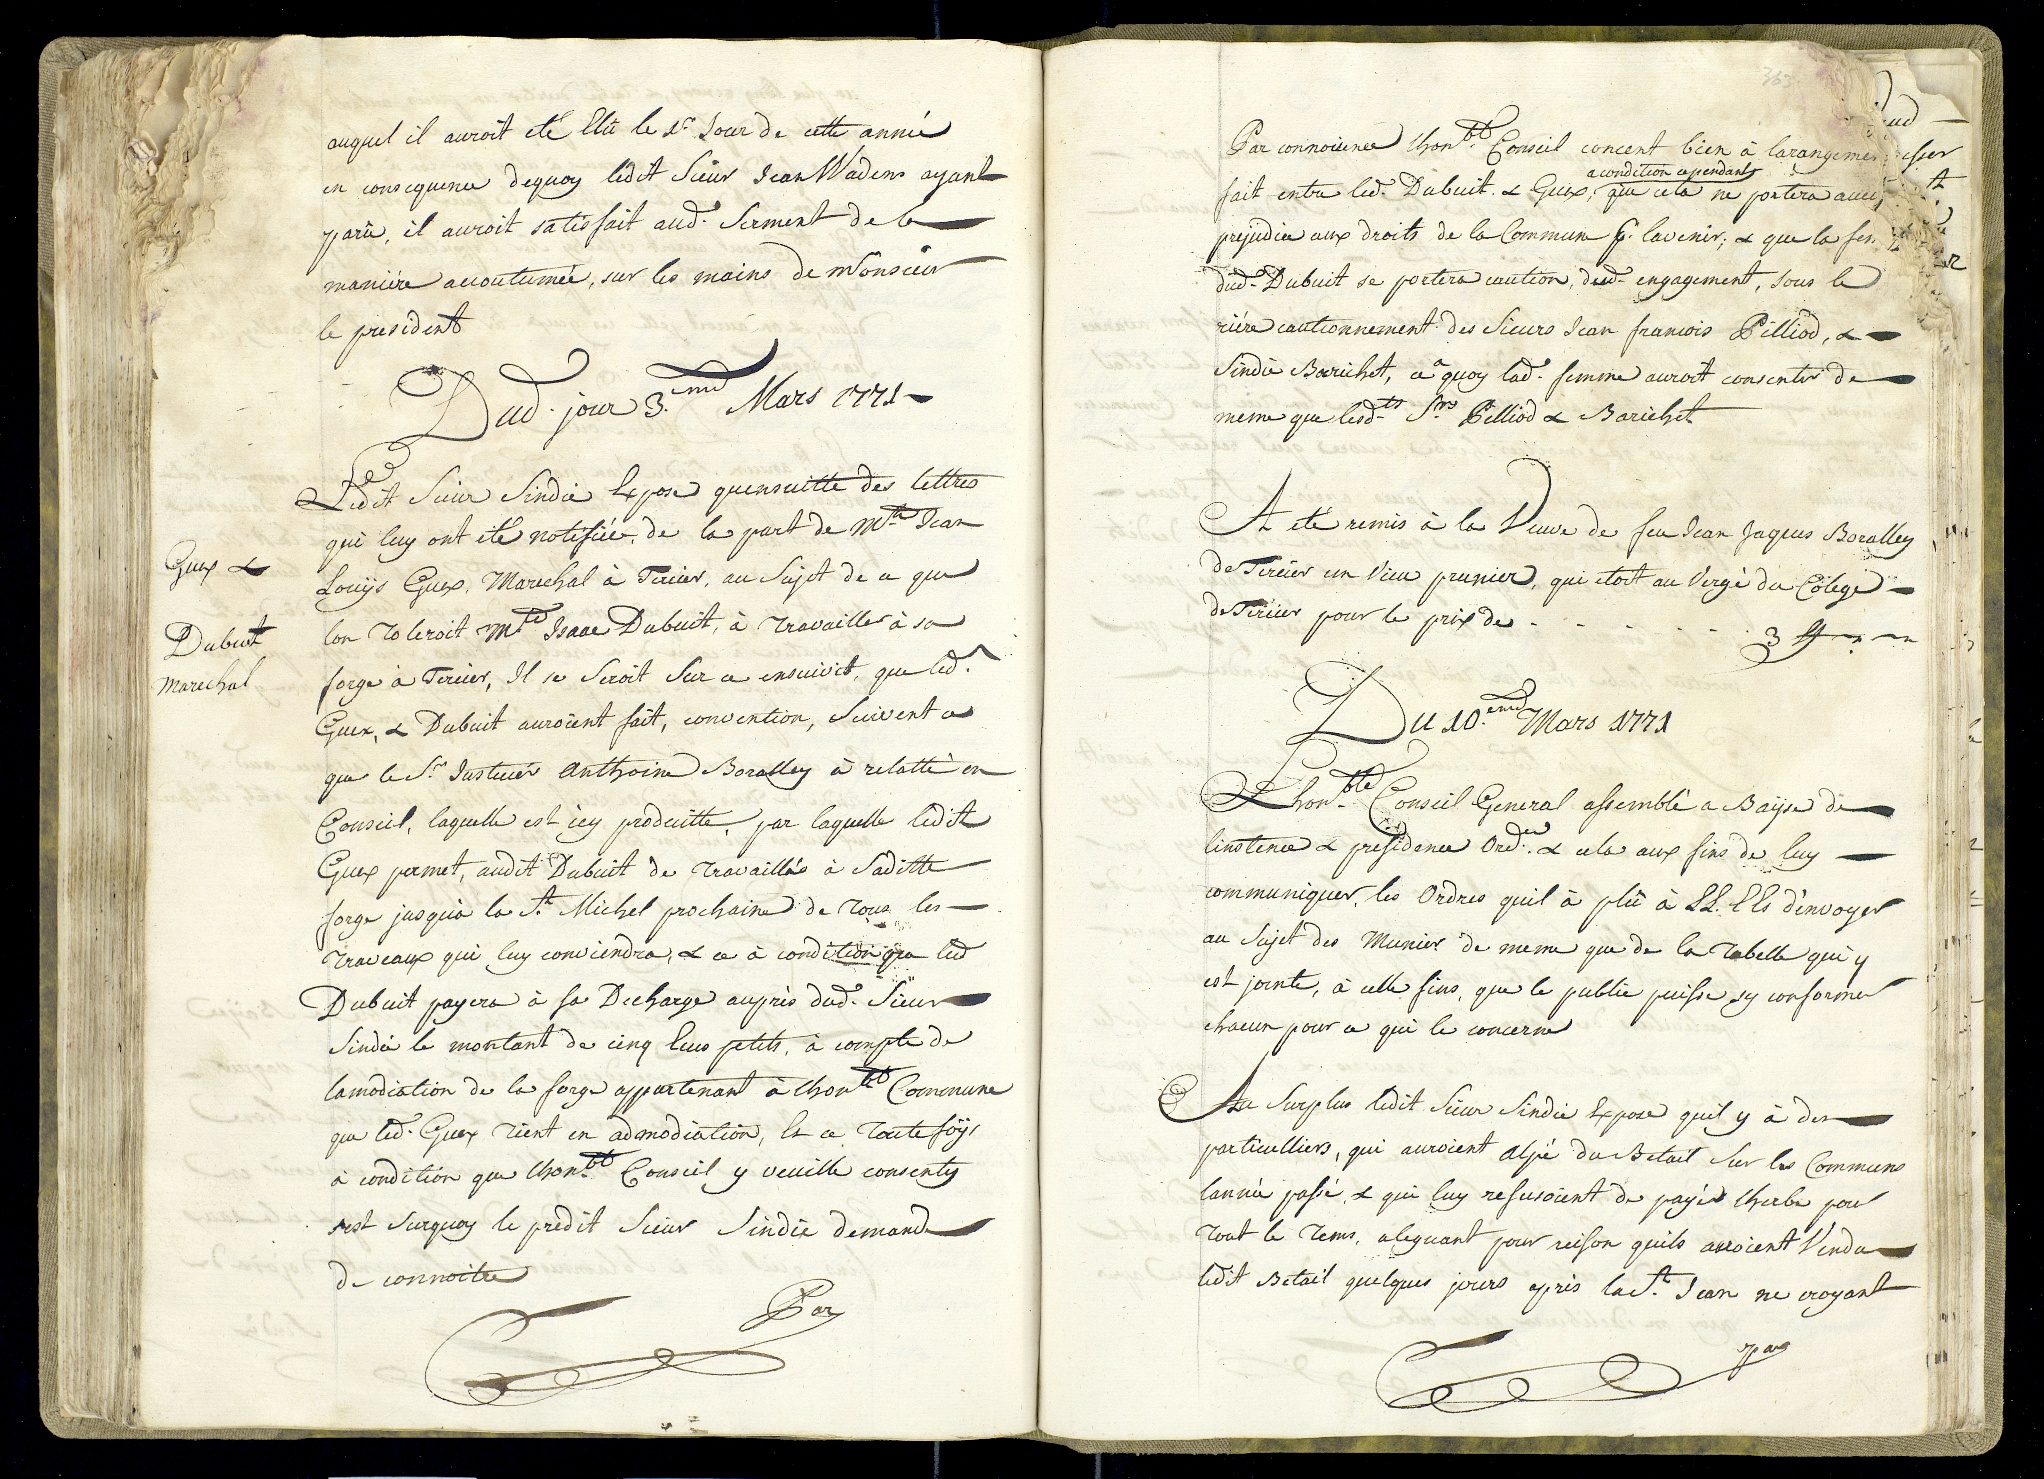 auquel il auroit eté Elû le 1er Jour de cette année
en consequence dequoy ledit Sieur Jean Wadens ayant
parû, il auroit satisfait aud. Serment de la
maniére accoutumée, sur les mains de Monsieur
le president
Dud. jour 3.eme Mars 1771
Ledit Sieur Sindic Expose quensuitte des lettres
qui luy ont eté notifiée, de la part de Mtre Jean
Louÿs Guex, Marechal à Tercier, au Sujet de ce que
lon toleroit Mtre Isaac Dubuit, à travailler à sa
forge à Tercier, Il se Seroit Sur ce ensuivit, que led.
Guex, & Dubuit auroient fait, convention, Suivent ce
que le Sr. Justicier Anthoine Boralley à relatté en
Conseil, laquelle est icy produitte, par laquelle ledit
Guex permet, audit Dubuit de travaillés à Saditte
forge jusquà la St. Michel prochaine de tous les
travaux qui luy conviendra, & ce à condition que led
Dubuit payera à sa Decharge auprès dud. Sieur
Sindic le montant de cinq Ecus petits, à compte de
lamodiation de la forge appartenant à lhonble Commune
que led. Guex tient en admodiation, Et ce toute foÿs
à condition que lhonble Conseil y veuille consenty
est surquoy le predit Sieur Sindic demande
de connoitre
Par
Guex &
Dubuit
Marechal
Par connoicence lhonble Conseil concent bien à larangement
fait entre led. Dubuit & Guex, a condition cependant que cela ne portera aucun
prejudice aux droits de la Commune pr. lavenir, & que la fem
dud. Dubuit se portera caution, dud. engagement, sous le
riére cautionnement des Sieurs Jean francois Pilliod, &
Sindic Barichet, ce à quoy lad. femme auroit consentir de
meme que lesdts Srs Pilliod & Barichet
At eté remis à la Veuve de feu Jean Jaques Boralley
de Tercier un Vieu prunier, qui etoit au Vergé du Cölege
de Tercier pour le prix de - - - - - 3
Du 10.eme Mars 1771
Lhonble Conseil General assemblé a Baÿse de
linstence & presidence Ordre. & cela aux fins de luy
communiquer, les Ordres quil à plû à LL. EEs d'envoyer
au Sujet des Munier de meme que de la tabelle qui y
est jointe, à celle fins, que le public puisse sy conformer
chacun pour ce qui le concerne
Au Surplus ledit Sieur Sindic Expose quil y à des
particulliers, qui auroient alpé du Betail Sur les Communs
lannée passé, & qui luy refusoient de payér lherbe pour
tout le tems, aleguant pour reison quils auroient Vendu
ledit Betail quelques jours après la St. Jean ne croyant
pas